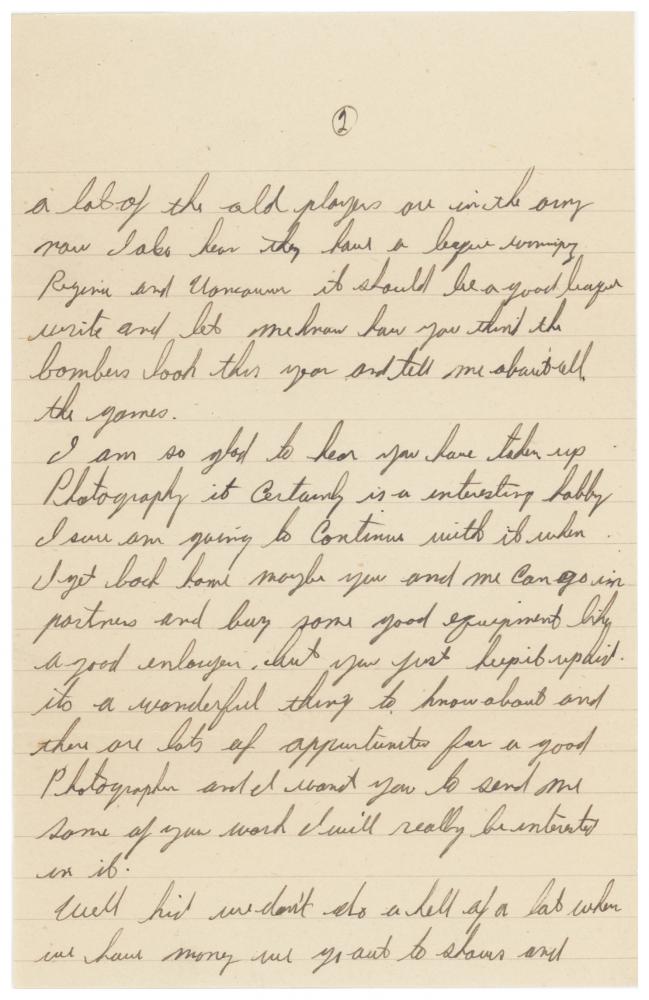 2
a lot of the old players are in the army
now I also hear they have a legue winnipeg
Regina and Vancouver it should be a good league
write and let me know how you think the
bombers look this year and tell me about all
the games.
I am so glad to hear you have taken up
Photography it Certainly is a interesting hobby
I sure am going to Continue with it when
I get back home maybe you and me Can go in
partners and buy some good equipment like
a good enlarger. but you just keep it up aid.
its a wonderful thing to know about and
there are lots of appurtunites for a good
Photographer and I want you to send me
some of your work I will really be interested
in it.
Well kid we don't do a hell of a lot when
we have money we go out to shows and